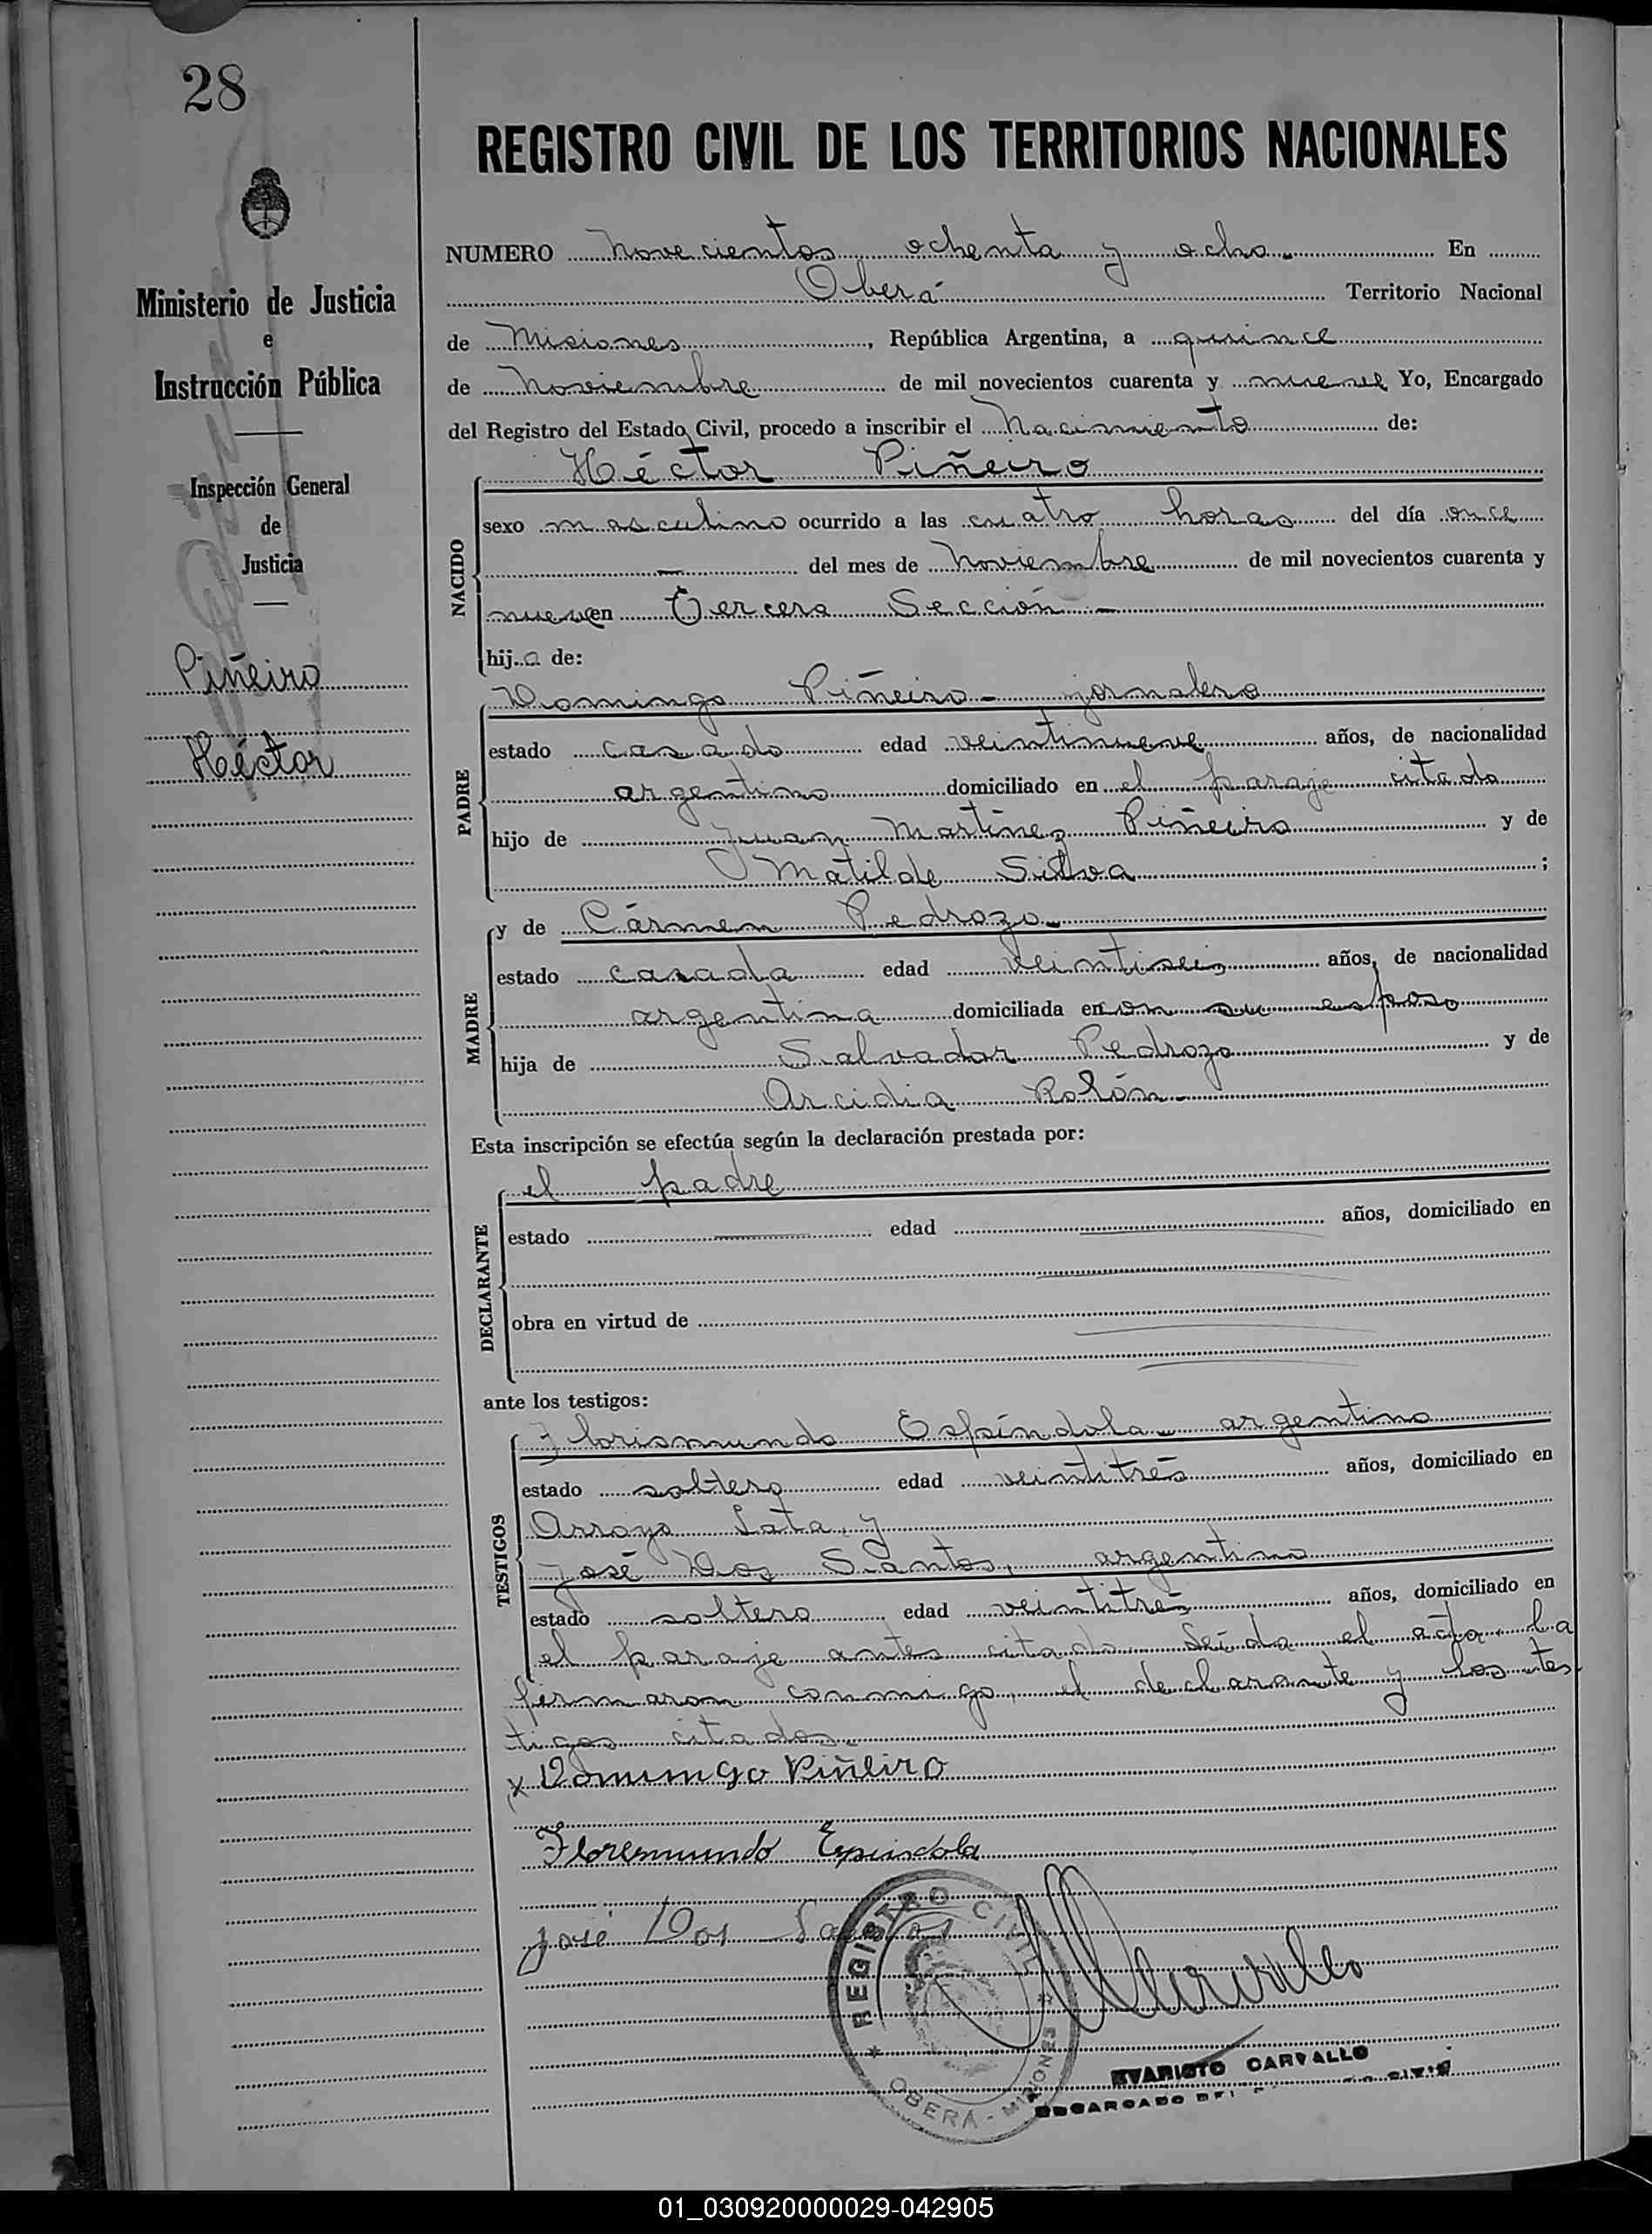 28
Ministerio de Justicia
e
Instrucción Pública
Inspección General
de
Justicia
Piñeiro
Héctor
REGISTRO CIVIL DE LOS TERRITORIOS NACIONALES
NUMERO Novecientos ochenta y ocho. En
Oberá Territorio Nacional
de Misiones, República Argentina, a quince
de Noviembre de mil novecientos cuarenta y nueve Yo, Encargado
del Registro del Estado Civil, procedo a inscribir el Nacimiento de:
Héctor Piñeiro
NACIDO
sexo masculino ocurrido a las cuatro horas del día once
— del mes de Noviembre de mil novecientos cuarenta y
nueve en Tercera Sección.—
hijo de:
PADRE
Domingo Piñeiro - jornalero
estado casado edad veintinueve años, de nacionalidad
argentino domiciliado en el paraje citado
hijo de Juan Martínez Piñeiro y de
Matilde Silva ;
MADRE
y de Cármen Pedrozo.
estado casada edad veintiseis años, de nacionalidad
argentina domiciliada en con su esposo
hija de Salvador Pedrozo y de
Arcidia Rolón.
Esta inscripción se efectúa según la declaración prestada por:
DECLARANTE
el padre
estado edad años, domiciliado en
obra en virtud de
ante los testigos:
TESTIGOS
Florismundo Espíndola. argentino
estado soltero edad veintitrés años, domiciliado en
Arroyo Lata, y
José Dos Santos, argentino
estado soltero edad veintitrés años, domiciliado en
el paraje antes citado. Leída el acta, la
firmaron conmigo, el declarante y los tes
tigos citados.
x Domingo Piñeiro
Floresmundo Espindola
José Dos Santos
REGISTRO CIVIL
* OBERÁ - MISIONES *
EVARISTO CARVALLO
ENCARGADO DEL CIVIL
01_030920000029-042905